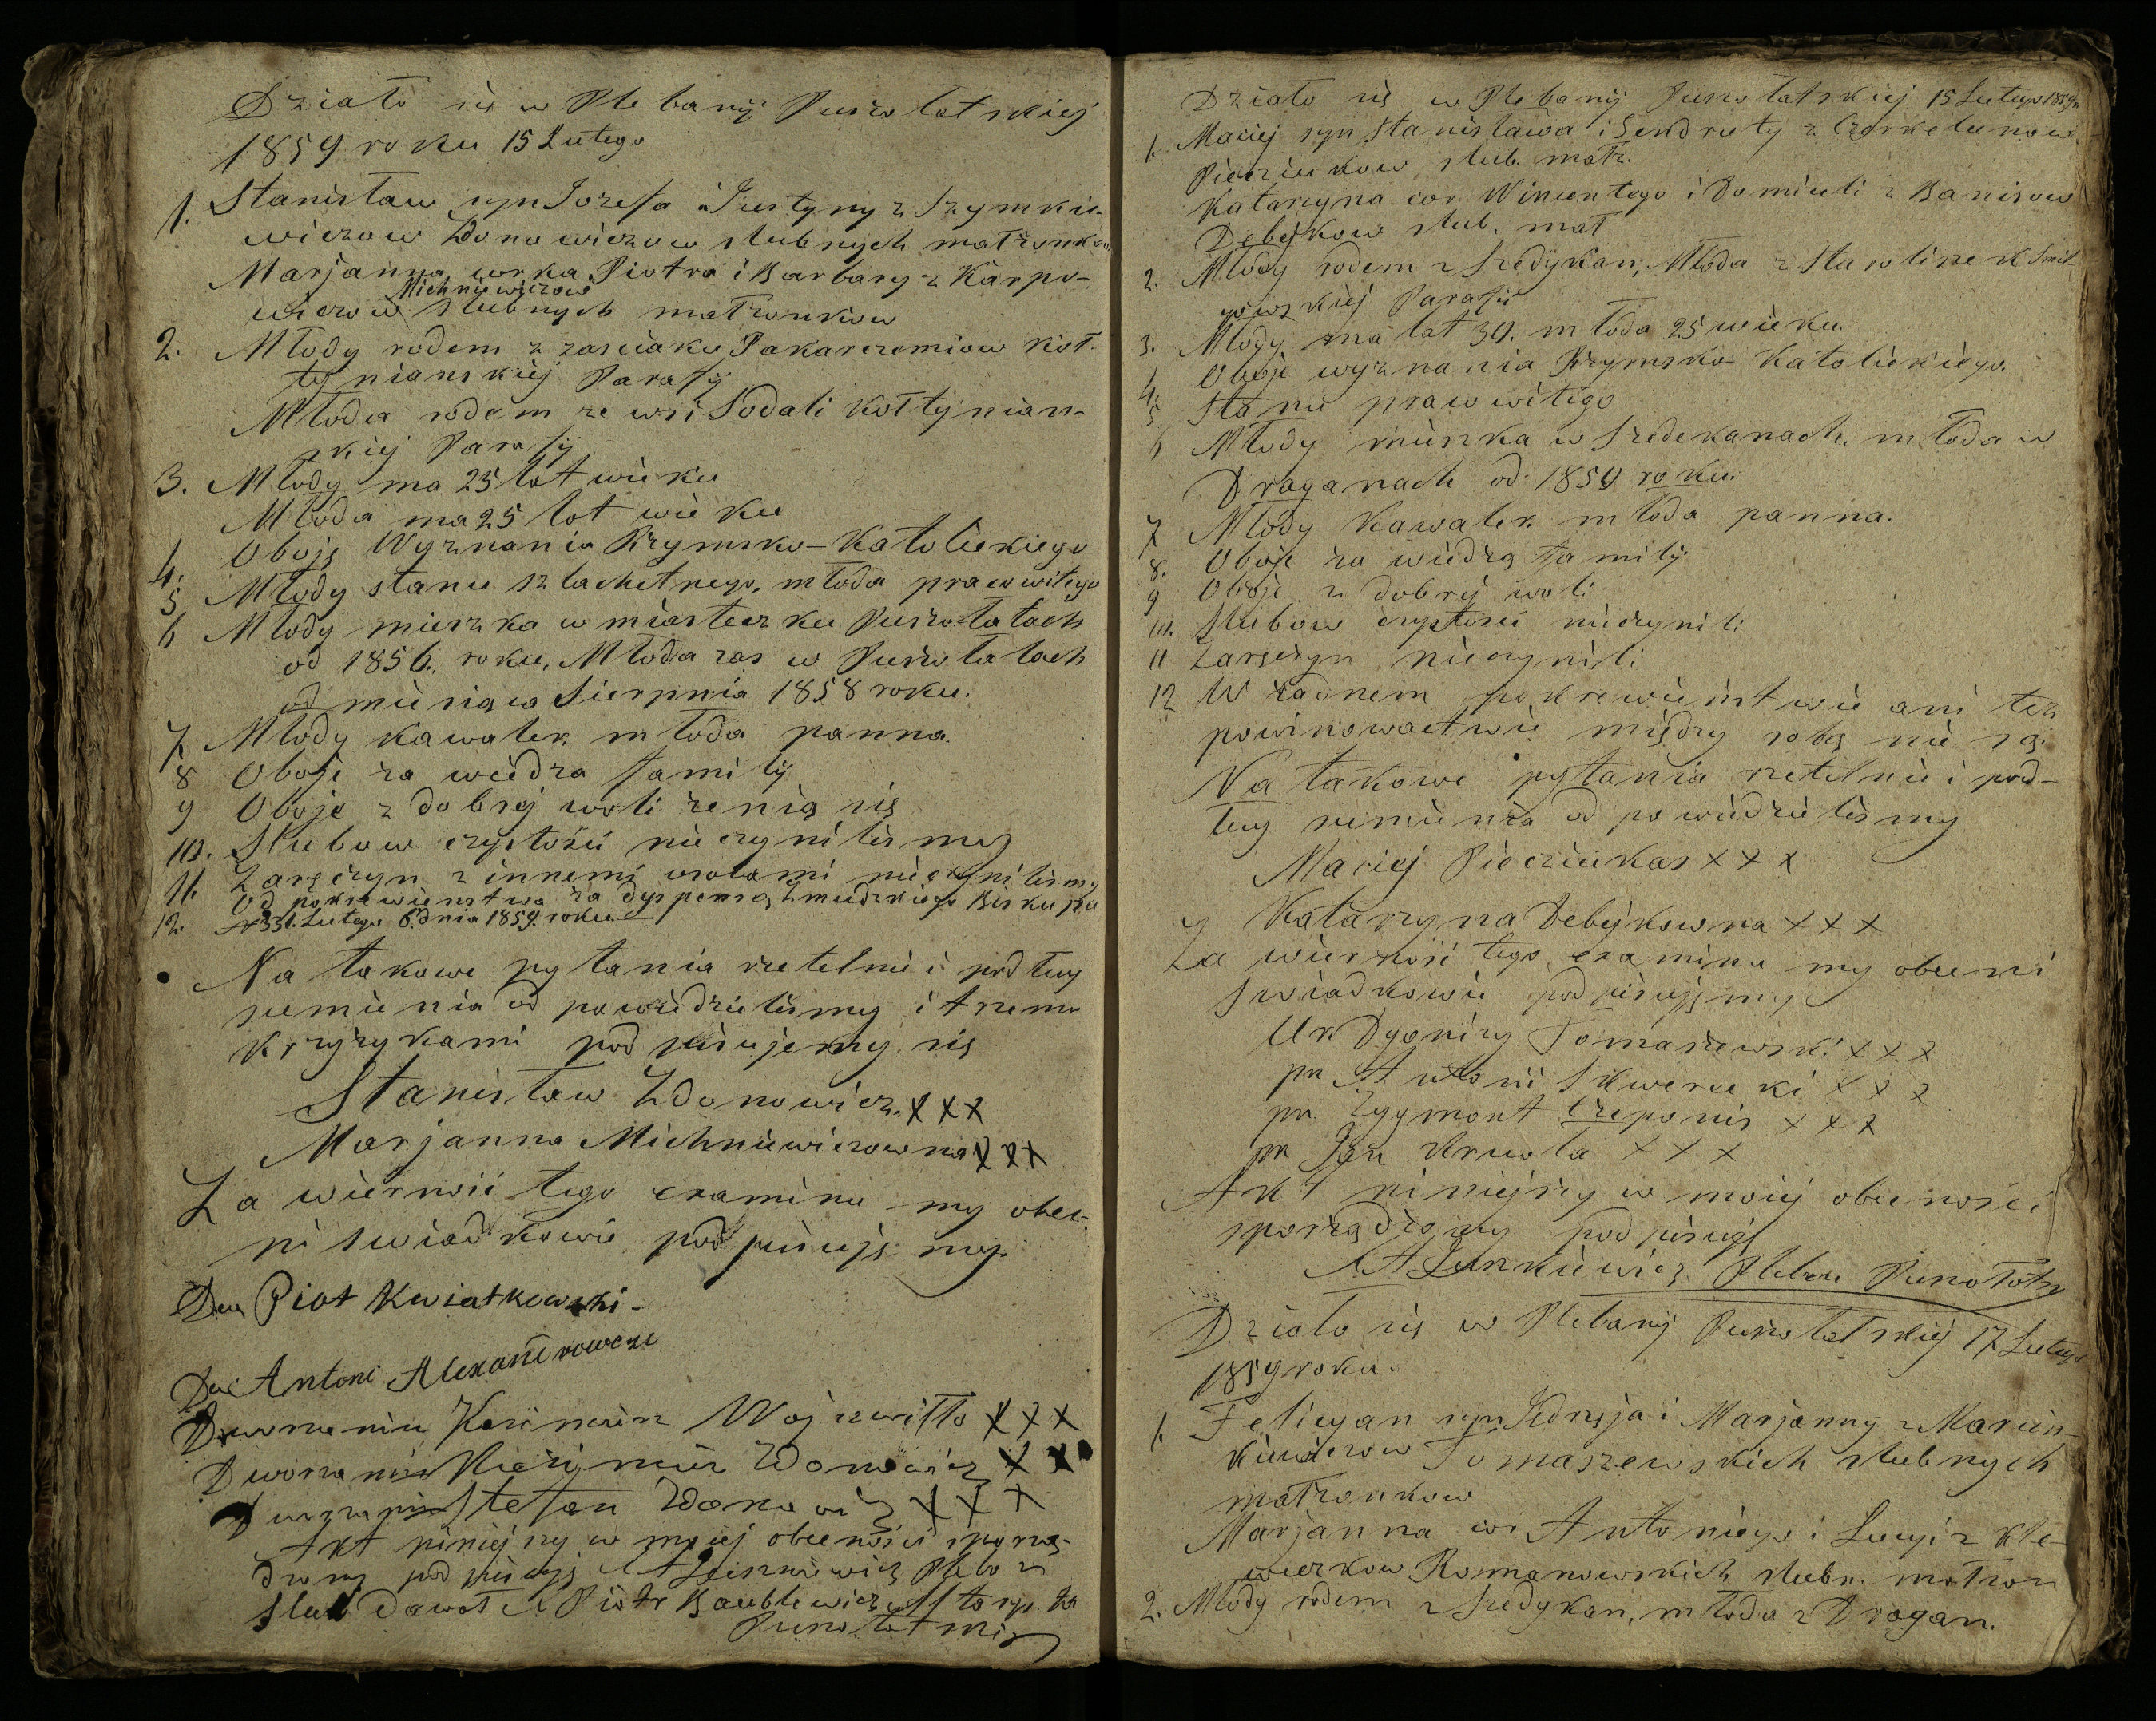 Działo się w Plebanij Puszołatskiej
1859 roku 15 Lutego
1. Stanisław syn Jozefa i Justyny z Szymkie-
wiczow Zdonowiczow slubnych małżonkow
Marjanna corka Piotra i Barbary z Karpo-
Michniewiczow
wiczow slubnych małzonkow
2. Młody rodem z zascianku Pakarczemiow Koł-
tynianskiej Parafij
Młoda rodem ze wsi Sodali Kołtynian-
skiej Parafij
3. Młody ma 25 lat wieku
Młoda ma 25 lat wieku
4. Oboje Wyznania Rzymsko-Katolickiego
5 Młody stanu szlachetnego, młoda prawowitego
6 Młody mieszka w miasteczku Puszołatach
od 1856. roku, Młoda zas w Puszołatach
od miesiąca Sierpnia 1858 roku.
7 Młody kawaler młoda panna.
8 Oboje za wiedza familij
9 Oboje z dobrej woli żenią się
10. Slubow czystości nieczynilismy
11. Zaręczyn z innemi osobami nieczynilismy
12. Od pokrewienstwa za dyspensą Zmudzkiego Biskupa
N 331. Lutego 6. dnia 1859. roku.
Na takowe pytania rzetelnie i podług
sumienia odpowiedzielismy i trzema
Krzyzykami podpisujemy się
Stanisław Zdonowicz. XXX
Marjanna Michniewiczowna XXX
Za wiernosć tego examinu my obec-
ni swiadkowie podpisujemy.
Piotr Kwiatkowski -
Antoni
Dworzanin Kazimierz Wojzwiłło XXX
Dworzanin Kazimierz Zdonowicz XXX
Dworzanin Stefan Zdonowicz XXX
Akt niniejszy w mojej obecności sporzą-
dzony podpisuję
Slub dawał X Piotr
Puszołatski
Działo się w Plebanij Puszołatskiej 15 Lutego 1859 r.
1. Maciej syn Stanisława i
slub. małz.
Katarzyna cor. Wincentego i Domiceli z Banisow
Debejkow slub. mał
2. Młody rodem z Szedykan, Młoda z
Parafii
3. Młody ma lat 30. młoda 25 wieku.
4. Oboje wyznania Rzymsko-Katolickiego.
5 Stanu prawowitego
6 Młody mieszka w Szedekanach. młoda w
Draganach od 1850 roku.
7 Młody Kawaler młoda panna.
8. Oboje za wiedzą familij
9 Oboje z dobrej woli
10. Slubow czystosci nieczynili
11 Zaręczyn nieczynili
12 W żadnem pokrewieństwie ani też
powinowactwie między sobą nie są.
Na takowe pytania rzetelnie i pod-
ług sumienia odpowiedzielismy
Maciej Piecziukas XXX
Katarzyna Debejkowna XXX
Za wiernosć tego examinu my obecni
swiadkowie podpisujemy
Ur Dyonizy Tomaszewski XXX
pn Antoni Skwerecki XXX
pn. Zygmont Czeponis XXX
pn Jan XXX
Akt niniejszy w mojej obecnosci
sporządzony podpisuję
Pleban
Działo się w Plebanij Puszołatskiej 17 Lutego
1859 roku.
1. Felicyan syn Jędrzeja i Marjanny z Marcin-
kiewiczow Tomaszewskich slubnych
małzonkow
Marjanna cor Antoniego i Lucyi z Kle-
Romanowskich slubn. małzon
2. Młody rodem z Szedykan, młoda z Dragan.